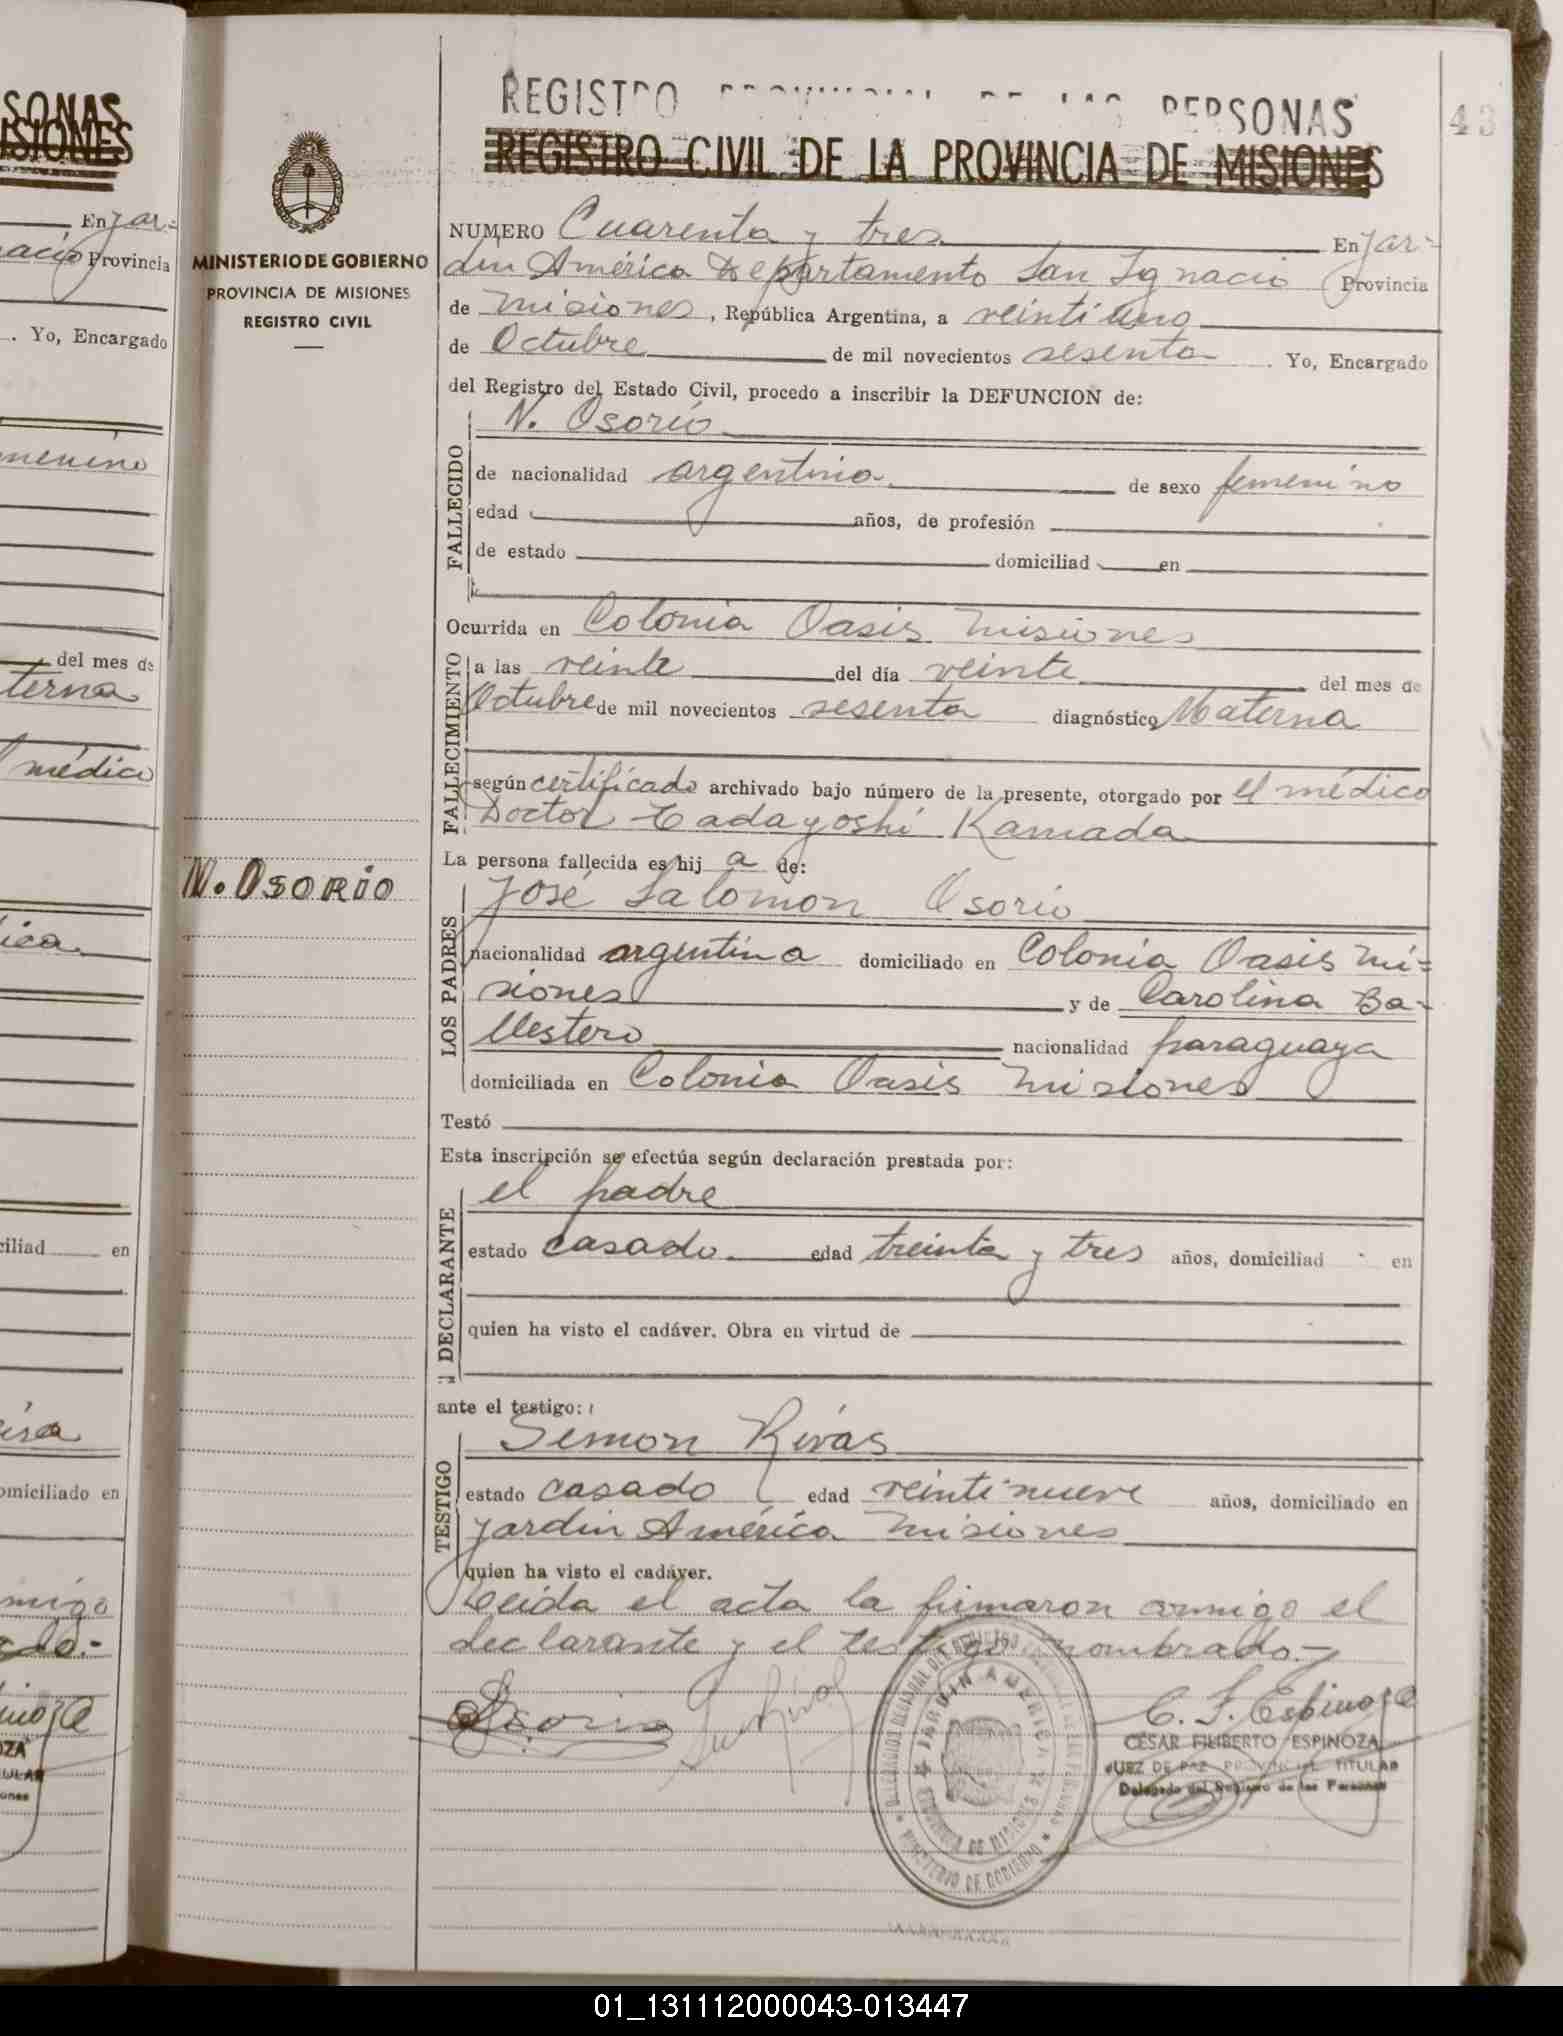 SONAS
MISIONES
En Jar=
nacio Provincia
. Yo, Encargado
menino
del mes de
terna
l médico
ica
ciliad en
omiciliado en
migo
do.-
MINISTERIO DE GOBIERNO
PROVINCIA DE MISIONES
REGISTRO CIVIL
N. OSORIO
REGISTRO PROVINCIAL DE LAS PERSONAS
43
REGISTRO CIVIL DE LA PROVINCIA DE MISIONES
NUMERO Cuarenta y tres En Jar-
din América Departamento San Ignacio Provincia
de Misiones, República Argentina, a veintiuno
de Octubre de mil novecientos sesenta. Yo, Encargado
del Registro del Estado Civil, procedo a inscribir la DEFUNCION de:
N. Osorio
FALLECIDO
de nacionalidad argentina de sexo femenino
edad años, de profesión
de estado domiciliad en
Ocurrida en Colonia Oasis Misiones
FALLECIMIENTO
a las veinte del día veinte del mes de
Octubre de mil novecientos sesenta diagnóstico Materna
según certificado archivado bajo número de la presente, otorgado por el médico
Doctor Tadayoshi Kamada
La persona fallecida es hij a de:
LOS PADRES
José Salomon Osorio
nacionalidad argentina domiciliado en Colonia Oasis Mi=
siones y de Carolina Ba-
llestero nacionalidad paraguaya
domiciliada en Colonia Oasis Misiones
Testó
Esta inscripción se efectúa según declaración prestada por:
DECLARANTE
el padre
estado casado edad treinta y tres años, domiciliad en
quien ha visto el cadáver. Obra en virtud de
ante el testigo:
TESTIGO
Simon Rivas
estado casado edad veintinueve años, domiciliado en
Jardin América Misiones
quien ha visto el cadáver.
Leida el acta la firmaron conmigo el
declarante y el testigo nombrado.-
Osorio
C. F. Espinoza
CÉSAR FILIBERTO ESPINOZA
JUEZ DE PAZ PROVINCIAL TITULAR
Delegado del Registro de las Personas
JARDIN AMERICA
PROVINCIA DE MISIONES
MINISTERIO DE GOBIERNO
01_131112000043-013447